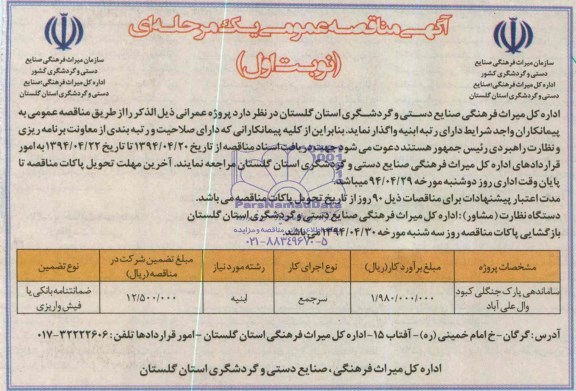 آگهی مناقصه عمومی یک مرحله‌ای
(نوبت اول)
سازمان میراث فرهنگی صنایع
دستی و گردشگری کشور
اداره کل میراث فرهنگی، صنایع
دستی و گردشگری استان گلستان
سازمان میراث فرهنگی صنایع
دستی و گردشگری کشور
اداره کل میراث فرهنگی، صنایع
دستی و گردشگری استان گلستان
اداره کل میراث فرهنگی صنایع دستی و گردشگری استان گلستان در نظر دارد پروژه عمرانی ذیل الذکر را از طریق مناقصه عمومی به
پیمانکاران واجد شرایط دارای رتبه ابنیه واگذار نماید. بنابراین از کلیه پیمانکارانی که دارای صلاحیت و رتبه بندی از معاونت برنامه ریزی
و نظارت راهبردی رئیس جمهور هستند دعوت می شود جهت دریافت اسناد مناقصه از تاریخ ۱۳۹۴/۰۴/۲۰ تا تاریخ ۱۳۹۴/۰۴/۲۲ به امور
قراردادهای اداره کل میراث فرهنگی صنایع دستی و گردشگری استان گلستان مراجعه نمایند. آخرین مهلت تحویل پاکات مناقصه تا
پایان وقت اداری روز دوشنبه مورخه ۹۴/۰۴/۲۹ میباشد.
مدت اعتبار پیشنهادات برای مناقصات ذیل ۹۰ روز از تاریخ تحویل پاکات مناقصه می باشد.
دستگاه نظارت (مشاور): اداره کل میراث فرهنگی صنایع دستی و گردشگری استان گلستان
بازگشایی پاکات مناقصه روز سه شنبه مورخه ۱۳۹۴/۰۴/۳۰ می باشد.
ParsNamadData
۰۲۱-۸۸۳۴۹۶۷۰-۵
مشخصات پروژه	مبلغ برآورد کار (ریال)	نوع اجرای کار	رشته مورد نیاز	مبلغ تضمین شرکت در مناقصه (ریال)	نوع تضمین
ساماندهی پارک جنگلی کبود وال علی آباد	۱/۹۸۰/۰۰۰/۰۰۰	سرجمع	ابنیه	۱۲/۵۰۰/۰۰۰	ضمانتنامه بانکی یا فیش واریزی
آدرس: گرگان - خ امام خمینی (ره) - آفتاب ۱۵ - اداره کل میراث فرهنگی استان گلستان - امور قراردادها تلفن: ۳۲۲۲۲۶۰۶-۰۱۷
اداره کل میراث فرهنگی، صنایع دستی و گردشگری استان گلستان